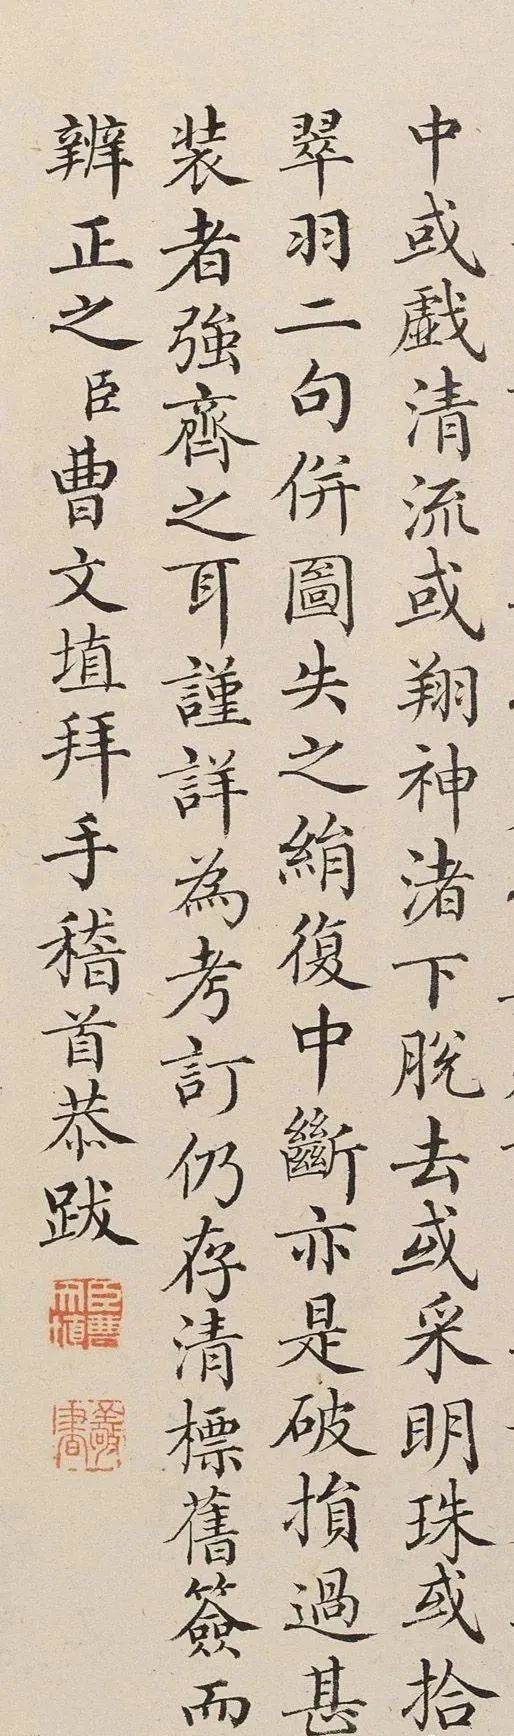 中或戯清流或翔神渚下脫去或采明珠或拾
翠羽二句併圖失之絹復中斷亦是破損過甚
装者強齊之耳謹詳為考訂仍存清標舊簽而
辨正之臣曹文埴拜手稽首恭跋
臣曹文埴
敬書